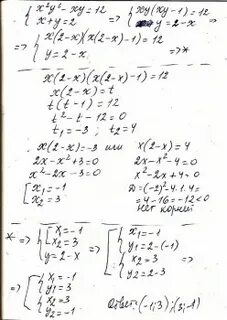 {x²y² - xy = 12 => {xy(xy-1) = 12 =>
{x+y = 2 {y = 2-x
=> {x(2-x)(x(2-x)-1) = 12 => *
{y = 2-x
x(2-x)(x(2-x)-1) = 12
x(2-x) = t
t(t-1) = 12
t² - t - 12 = 0
t₁ = -3; t₂ = 4
x(2-x) = -3 или x(2-x) = 4
2x - x² + 3 = 0 2x - x² - 4 = 0
x² - 2x - 3 = 0 x² - 2x + 4 = 0
[x₁ = -1 D = (-2)² - 4·1·4 =
[x₂ = 3 = 4 - 16 = -12 < 0
нет корней
* => {[x₁ = -1 => [{x₁ = -1
{[x₂ = 3 [{y₁ = 2-(-1) =>
{y = 2-x [{x₂ = 3
[{y₂ = 2-3
=> [{x₁ = -1
[{y₁ = 3
[{x₂ = 3
[{y₂ = -1
Ответ: (-1; 3); (3; -1)